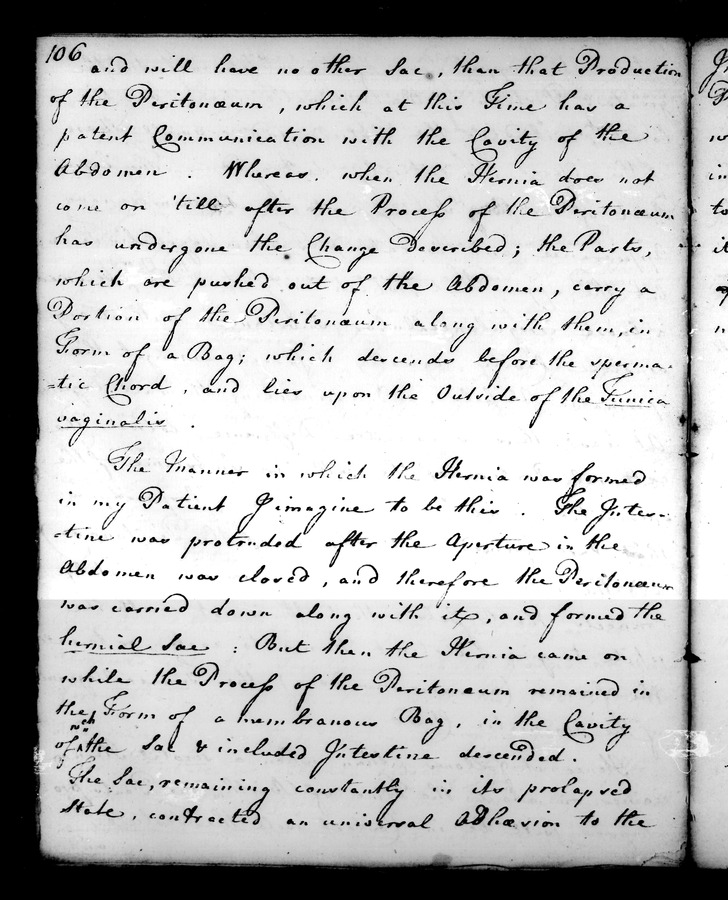 106
and will have no other Sac, than that Production
of the Peritonæum, which at this Time has a
patent Communication with the Cavity of the
Abdomen. Whereas, when the Hernia does not
come on 'till after the Process of the Peritonæum
has undergone the Change Described; the Parts,
which are pushed out of the Abdomen, carry a
Portion of the Peritonæum along with them, in
Form of a Bag; which descends before the sperma-
-tic Chord, and lies upon the Outside of the Tunica
vaginalis.
The Manner in which the Hernia was formed
in my Patient I imagine to be this. The Intes-
-tine was protruded after the Aperture in the
Abdomen was closed, and therefore the Peritonæum
was carried down along with it, and formed the
hernial Sac: But then the Hernia came on
while the Process of the Peritonæum remained in
the Form of a membranous Bag, in the Cavity
of wch the Sac & included Intestine descended.
The Sac, remaining constantly in its prolapsed
State, contracted an universal Adhæsion to the